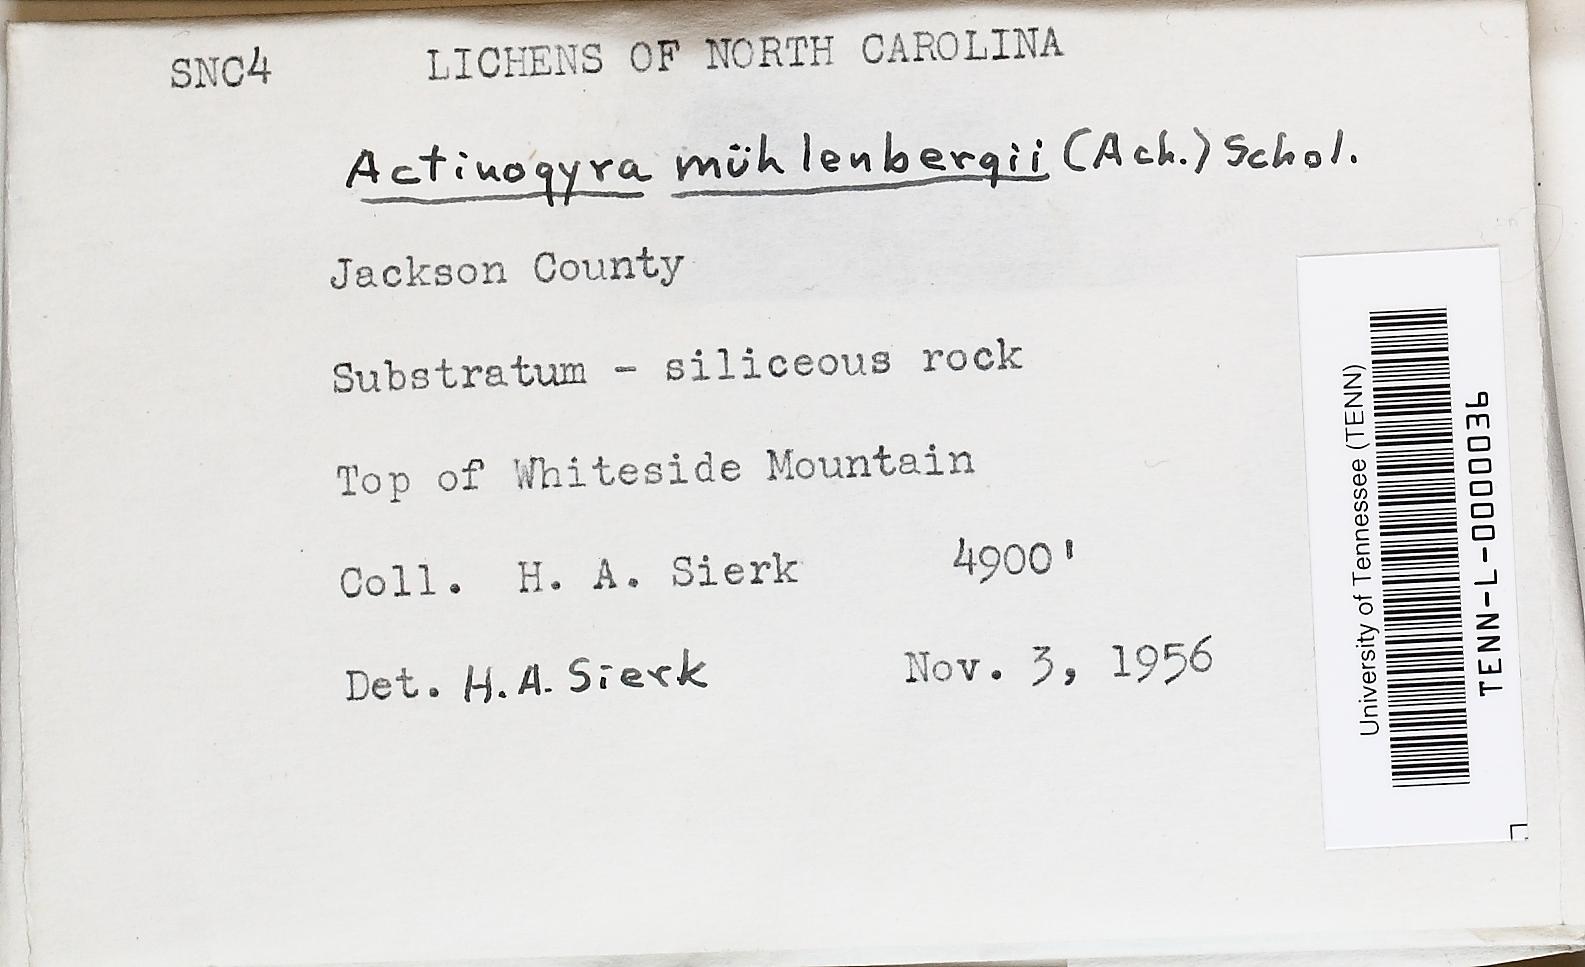 SNC4 LICHENS OF NORTH CAROLINA
Actinogyra mühlenbergii (Ach.) Schol.
Jackson County
Substratum - siliceous rock
Top of Whiteside Mountain
Coll. H. A. Sierk 4900'
Det. H. A. Sierk Nov. 3, 1956
University of Tennessee (TENN)
TENN-L-0000036